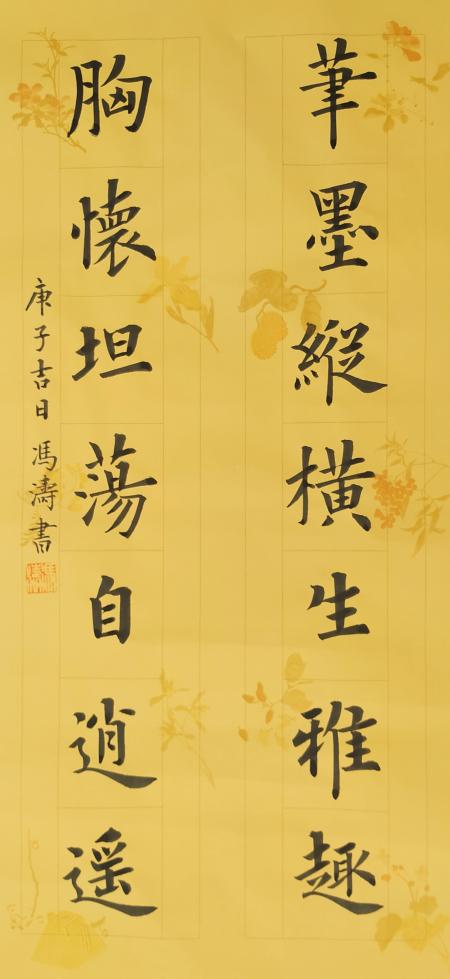 筆墨縱橫生雅趣
胸懷坦蕩自逍遥
庚子吉日馮濤書